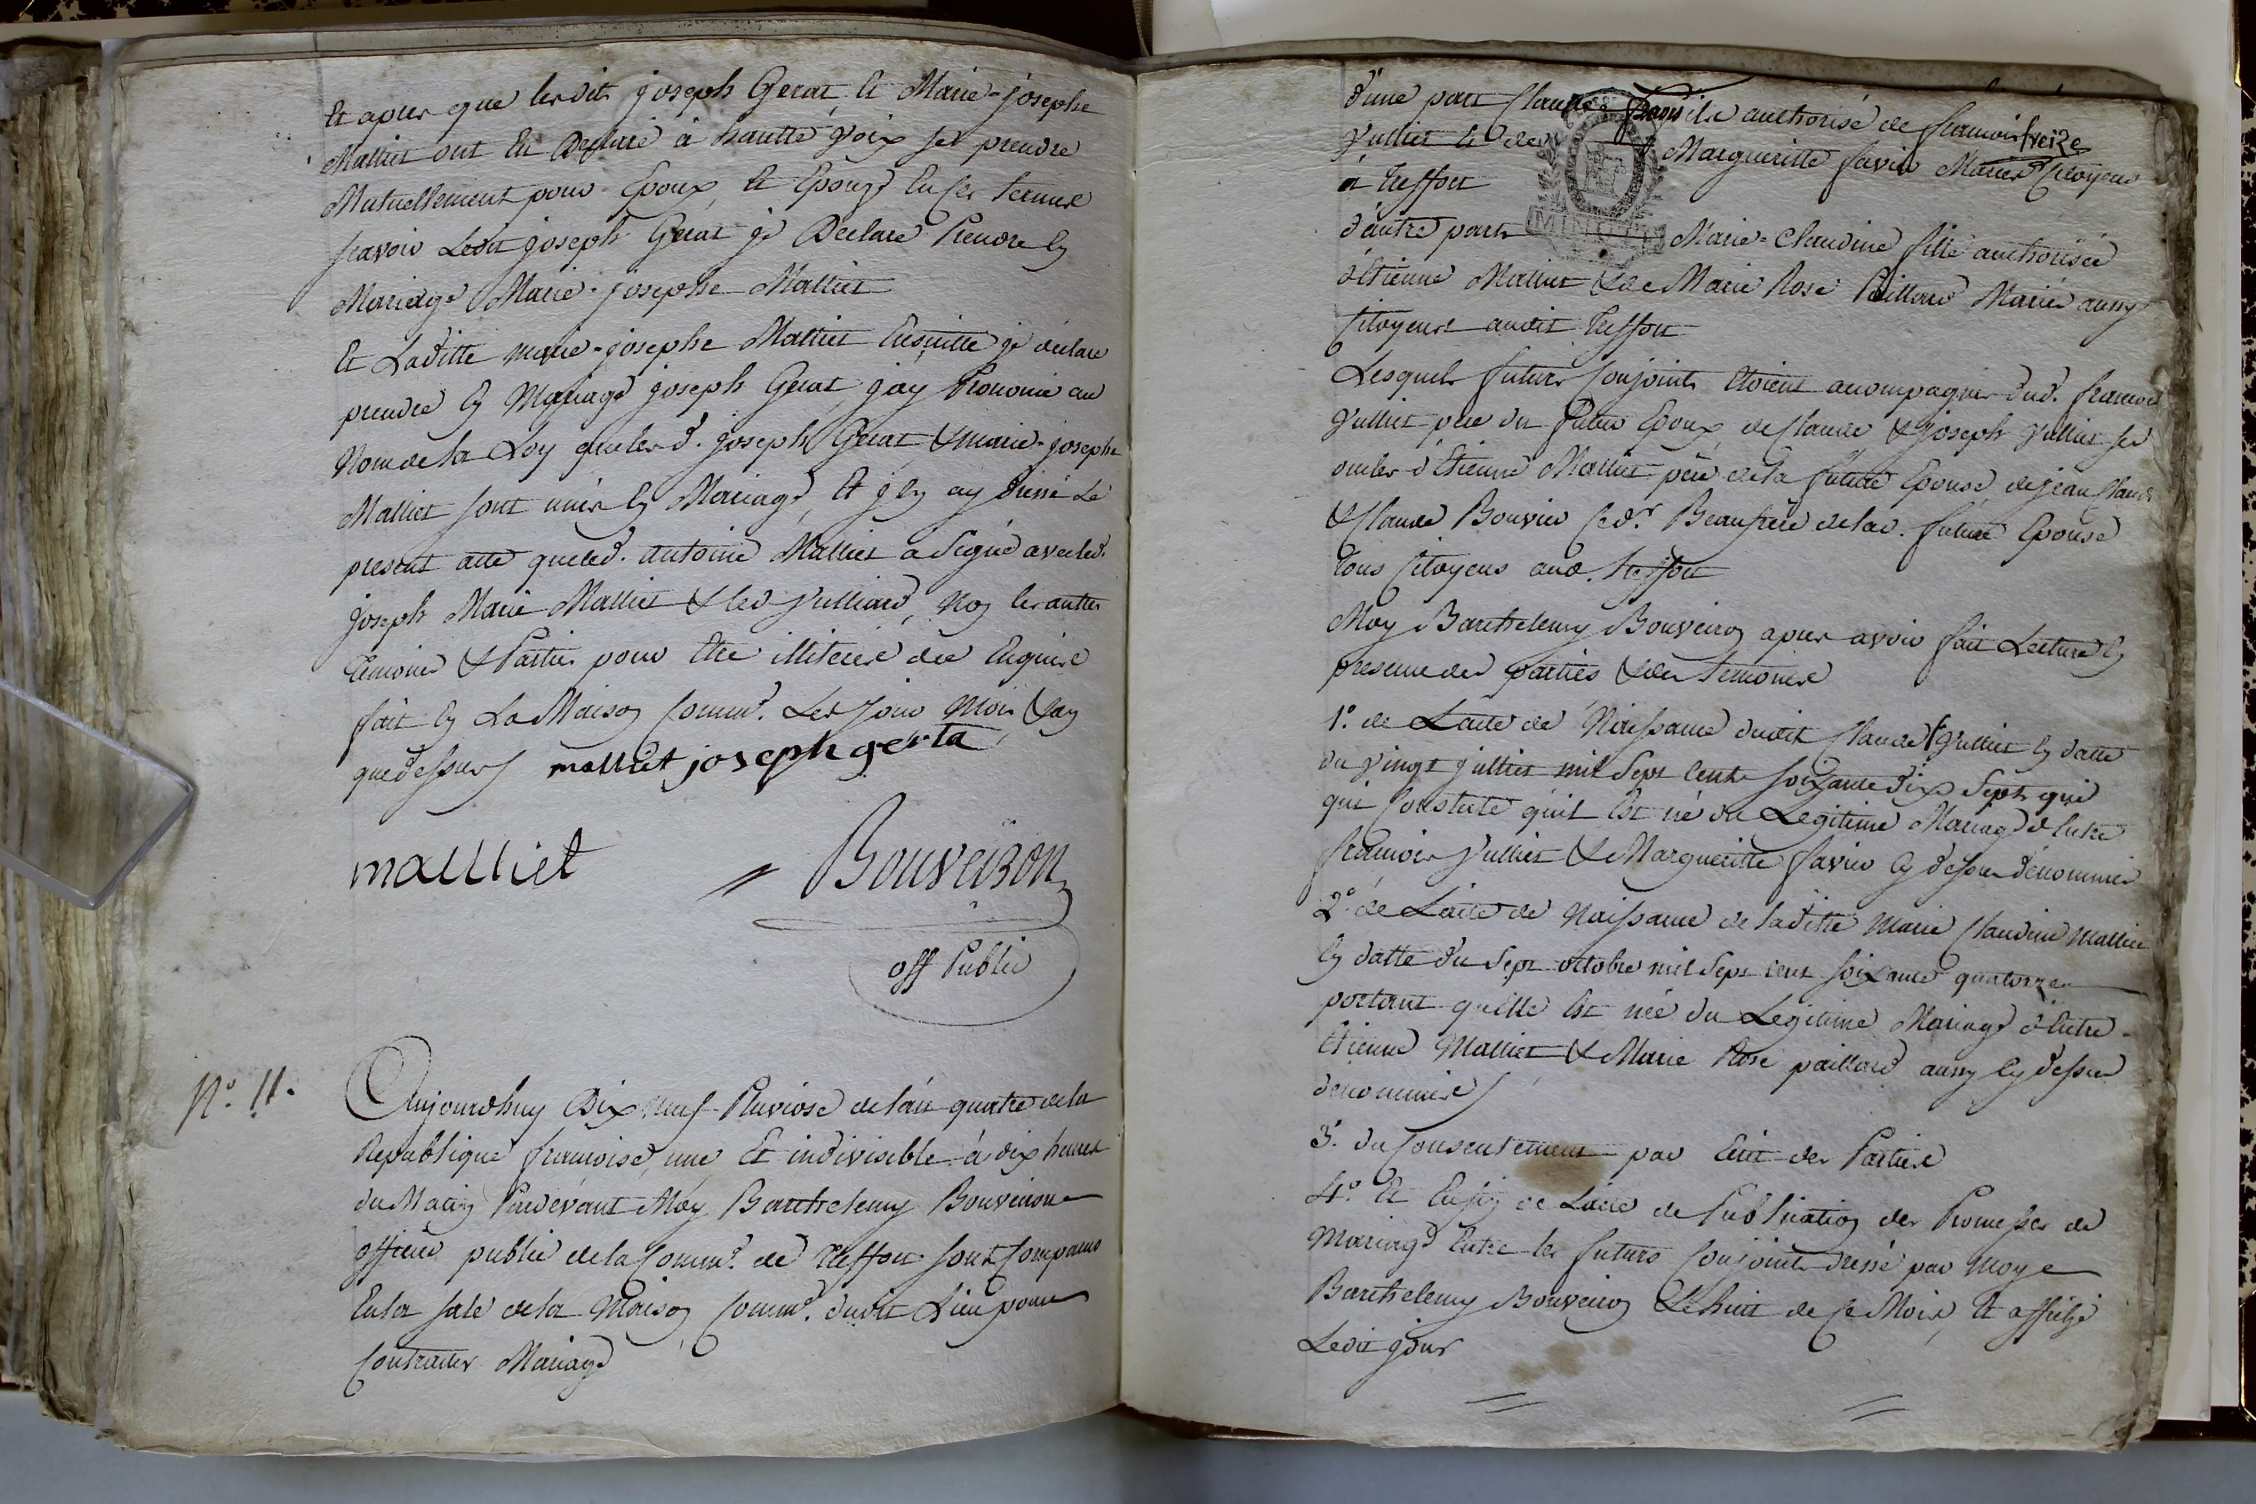 Et apres que lesdits joseph Gerat, Et Marie-josephe
Malliet ont Eu Declaré à hautte Voix se prendre
Mutuellement pour Epoux, Et Epouse En ces termes
scavoir Ledit joseph Gerat je Declare Prendre En
Mariage Marie-josephe Malliet
Et Laditte marie-josephe Malliet Ensuitte je déclare
prendre En Mariage joseph Gerat, jay Prononcé au
Nom de la Loy que lesd. joseph Gerat & marie-josephe
Malliet sont unis En Mariage, Et j'en ay Dressé Le
present acte que led. antoine Malliet a Signé avec led.
joseph Marie Malliet & led Julliard, Non les autres
temoins & Parties pour Etre illiterés de ce Enquis
fait En La Maison Commne. Les jour Mois & an
que dessus malliet joseph gerta
malliet = Bouveiron
off Public
No. 11. Aujourdhuy Dix neuf Pluviose de l'an quatre de la
Republique francoise, une Et indivisible à dix heures
du Matin Pardevant Moy Barthelemy Bouveiron
officier public de la Commne. de Treffort sont Comparus
En la sale de la Maison Commne. dudit Lieu pour
Contracter Mariage
d'une part Claude fils authorisé de francois
Julliet & de Margueritte favier Mariés Citoyens
à treffort
d'autre part Marie-Claudine fille authorisée
d'Etienne Malliet & de Marie Rose Paillard Mariés aussy
Citoyens audit treffort
Lesquels futurs Conjoints Etoient acompagnés dud. francois
Julliet pere du futur Epoux, de Claude & joseph Julliet ses
oncles d'Etienne Malliet père de la future Epouse, de jean Claude
& Claude Bouvier Beaufrere de lad. future Epouse
tous Citoyens aud. treffort
Moy Barthelemy Bouveiron apres avoir fait Lecture En
presence des parties & des temoins
1o. de L'acte de Naissance dudit Claude Julliet En datte
du Vingt juillet mil Sept Cent soixante dix Sept qui
qui Constate qu'il Est né du Legitime Mariage d'Entre
francois Julliet & Margueritte favier Cy dessus dénommés
2o. de L'acte de Naissance de laditte Marie Claudine Malliet
En datte du Sept octobre mil Sept cent soixante quatorze
portant qu'elle Est née du Legitime Mariage d'Entre
Etienne Malliet & Marie Rose paillard aussy Cy dessus
denommés
3o. du Consentement par Ecrit des Parties
4o. Et Enfin de L'acte de Publication des Promesses de
Mariage Entre les futurs Conjoints dressé par Moy
Barthelemy Bouveiron Le huit de Ce Mois, Et affiché
Ledit jour